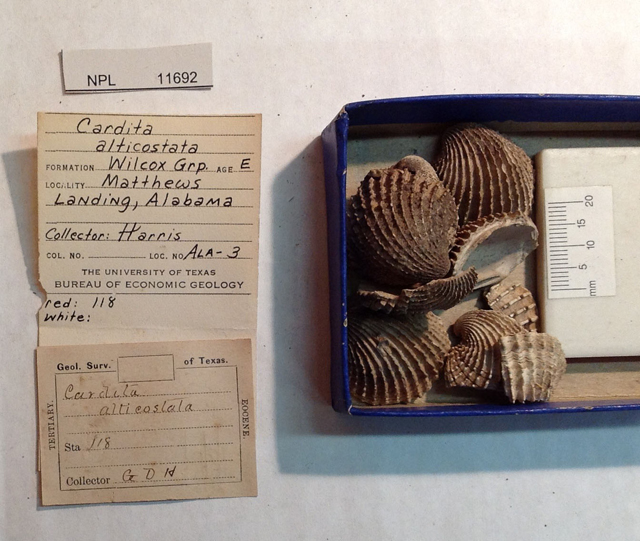 NPL 11692
Cardita
alticostata
FORMATION Wilcox Grp. AGE E
LOCALITY Matthews
Landing, Alabama
Collector: Harris
COL. NO. LOC. NO. ALA-3
THE UNIVERSITY OF TEXAS
BUREAU OF ECONOMIC GEOLOGY
red: 118
white:
Geol. Surv. of Texas.
TERTIARY.
Cardita
alticostata
EOCENE.
Sta 118
Collector G D H
20
15
10
5
mm